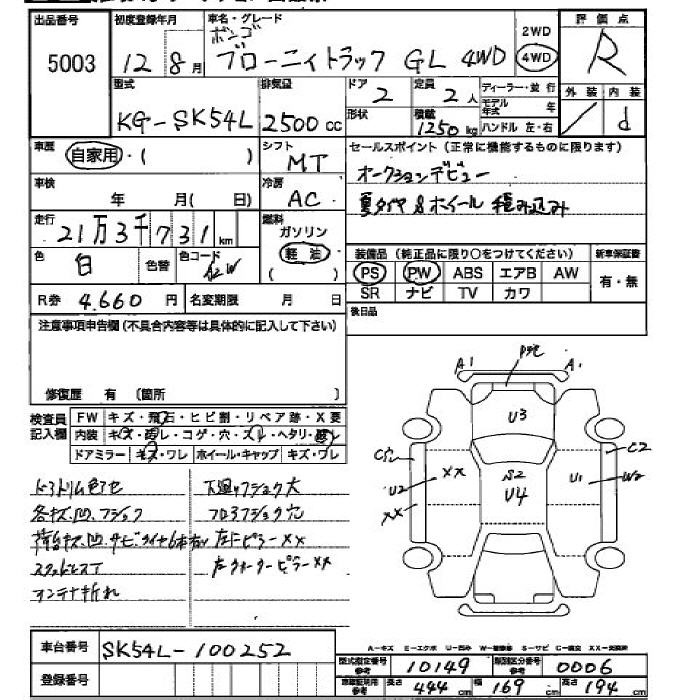 出品番号 5003
初度登録年月 12 8月
車名・グレード ボンゴ
ブローニィトラック GL 4WD
2WD
4WD
評価点 R
外装 / 内装 d
型式 KG-SK54L
排気量 2500cc
ドア 2
形状
定員 2人
積載 1250kg
ディーラー・並行
モデル年式 年
ハンドル 左・右
車歴 自家用・( )
シフト MT
セールスポイント(正常に機能するものに限ります)
オークションデビュー
夏タイヤ&ホイール 積み込み
車検 年 月( 日)
冷房 AC
走行 21万3千731km
燃料 ガソリン
軽油
( )
色 白 色替 色コード
装備品(純正品に限り○をつけてください)
PS PW ABS エアB AW
SR ナビ TV カワ
新車保証書
有・無
R券 4,660円 名変期限 月 日
後日品
注意事項申告欄(不具合内容等は具体的に記入して下さい)
修復歴 有 〔箇所 〕
検査員記入欄
FW キズ・飛石・ヒビ割・リペア跡・X要
内装 キズ・汚レ・コゲ・穴・スレ・ヘタリ・破レ
ドアミラー キズ・ワレ ホイール・キャップ キズ・ワレ
各キズ、凹、フショク
アンテナ折れ
下廻りフショク大
フロアフショク穴
左Bピラーxx
左クォーターピラーxx
A1
A1
U3
S2
U4
xx
U2
xx
U1
W2
C2
A-キズ E-エクボ U-凹み W-補修跡 S-サビ C-腐食 XX-交換済
車台番号 SK54L-100252
登録番号
型式指定番号 参考 10149
類別区分番号 参考 0006
参考 長さ 444cm 幅 169cm 高さ 194cm